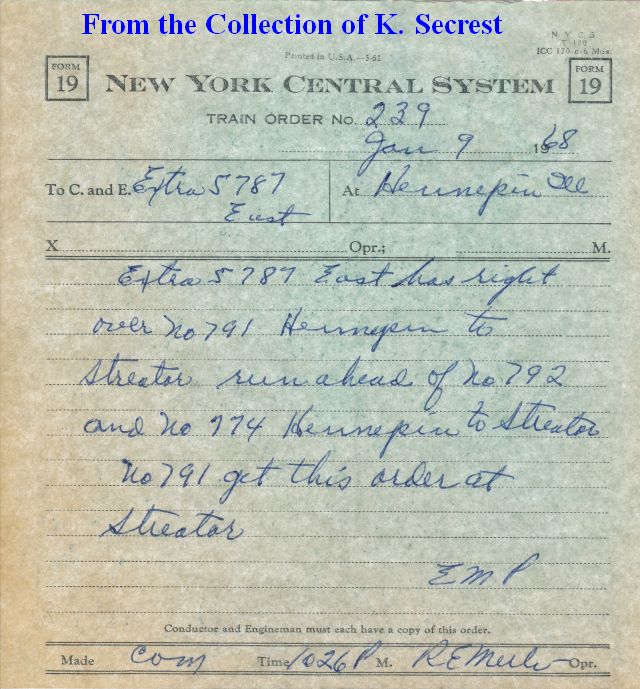 From the Collection of K. Secrest
N.Y.C.S
T 100
ICC 170 c-6 Mos.
Printed in U.S.A.—5-61
FORM 19
NEW YORK CENTRAL SYSTEM
FORM 19
TRAIN ORDER No. 239
Jan 9 1968
To C. and E. Extra 5787 At Hennepin Ill
East
X Opr.; M.
Extra 5787 East has right
over No 791 Hennepin to
Streator run ahead of No 792
and No 774 Hennepin to Streator
No 791 get this order at
Streator
E M P
Conductor and Engineman must each have a copy of this order.
Made Com Time 1026 P M. R E Opr.